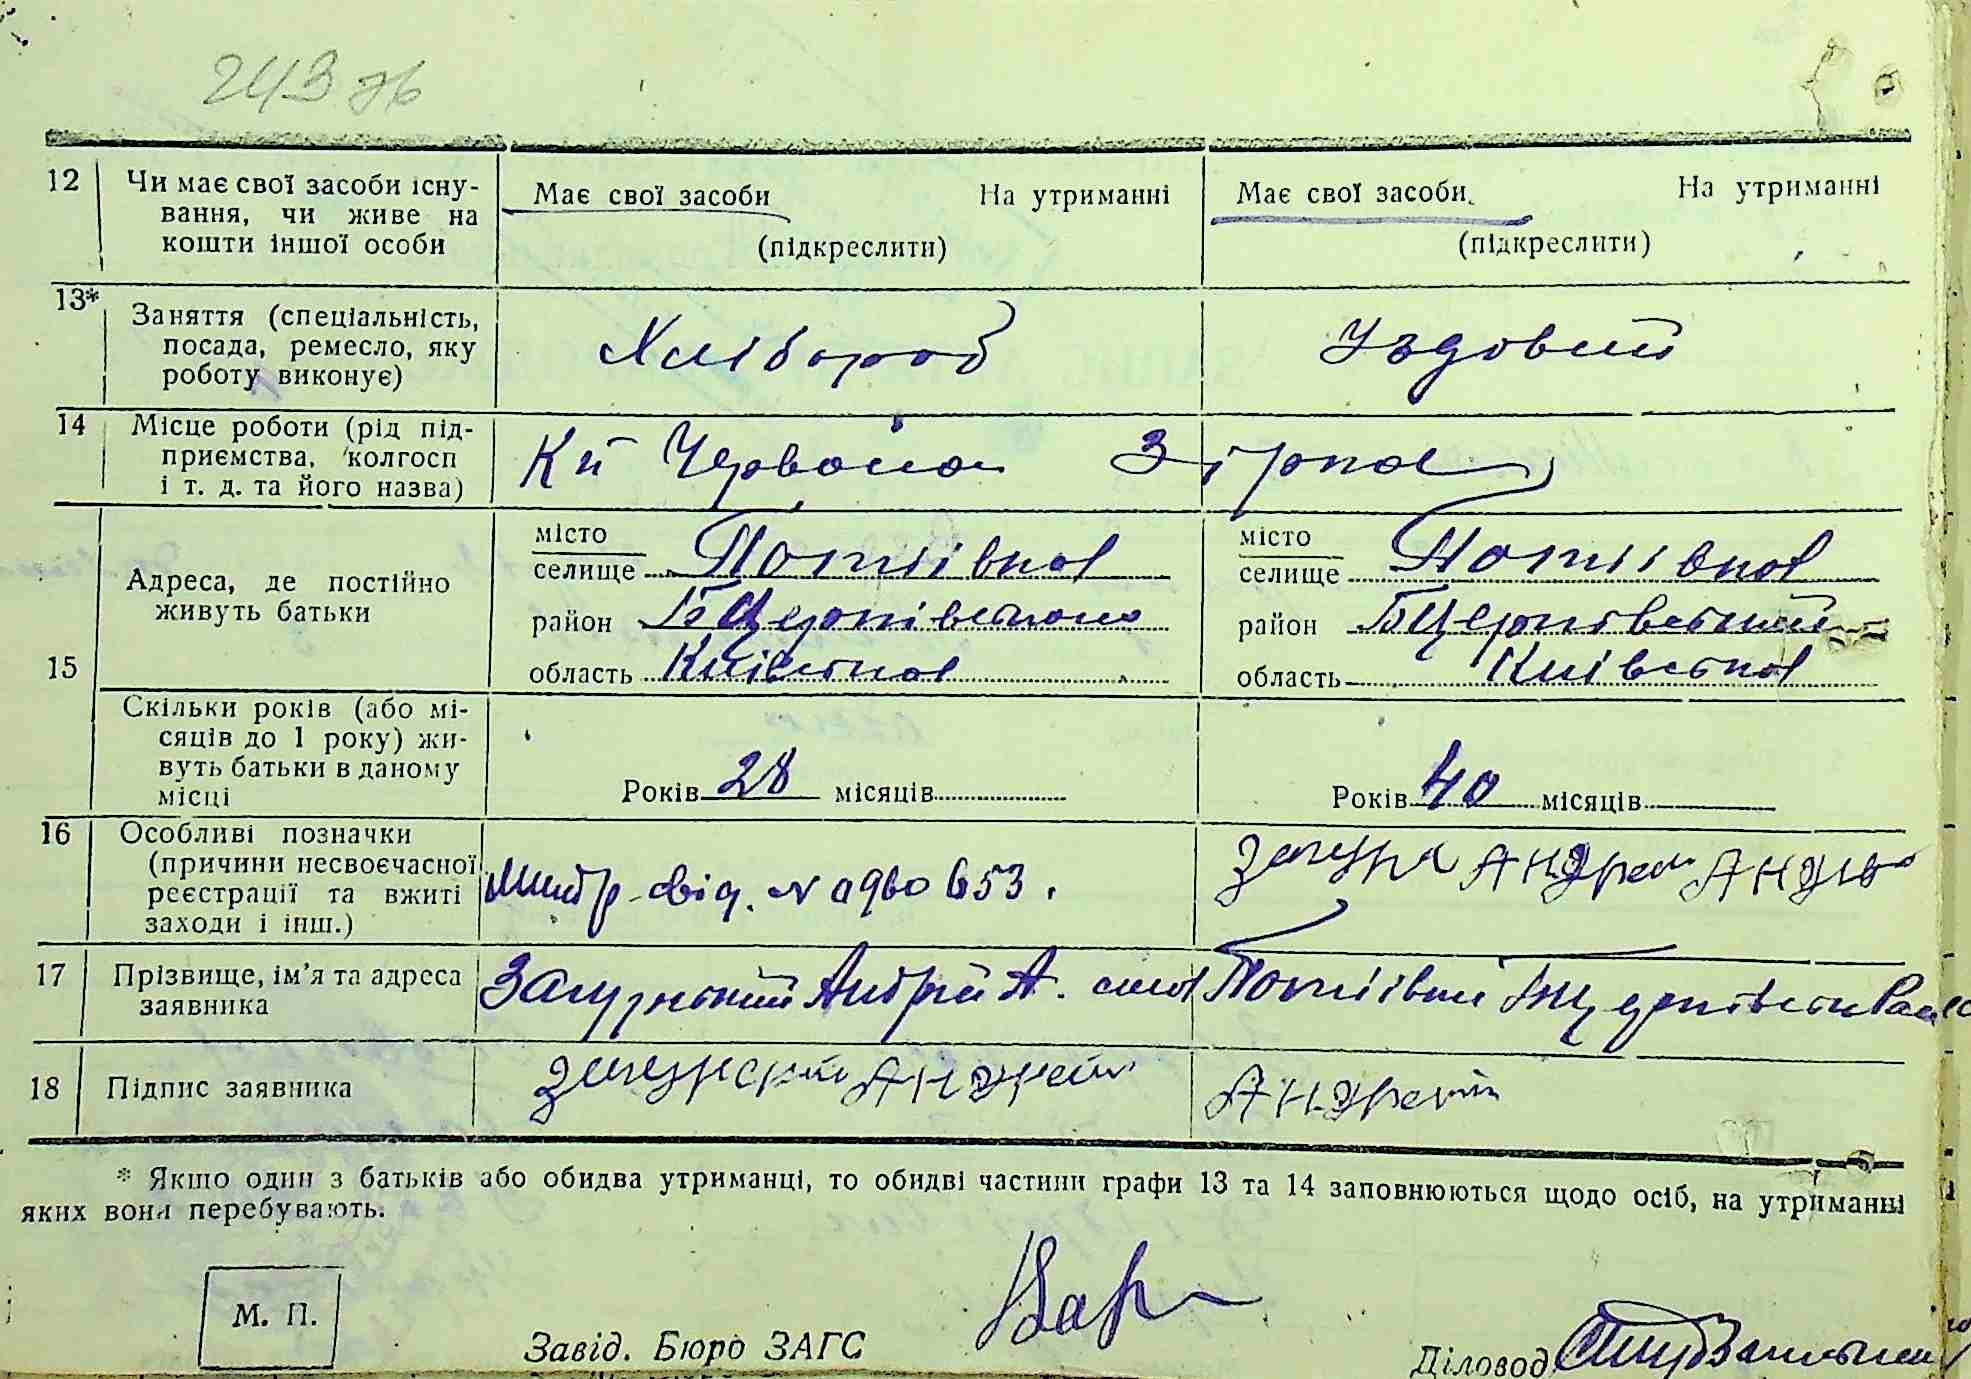 243 зв
12 Чи має свої засоби існу-
вання, чи живе на
кошти іншої особи
Має свої засоби На утриманні
(підкреслити)
Має свої засоби На утриманні
(підкреслити)
13* Заняття (спеціальність,
посада, ремесло, яку
роботу виконує)
Хлібороб
Їздовий
14 Місце роботи (рід під-
приємства, колгосп
і т. д. та його назва)
Кп Червона Зірка
15
Адреса, де постійно
живуть батьки
місто
селище Потіївка
район БЦерківського
область Київська
місто
селище Потіївка
район БЦерківський
область Київська
Скільки років (або мі-
сяців до 1 року) жи-
вуть батьки в даному
місці
Років 28 місяців
Років 40 місяців
16 Особливі позначки
(причини несвоєчасної
реєстрації та вжиті
заходи і інш.)
свід. N 0960653.
17 Прізвище, ім'я та адреса
заявника
Загурський Андрій А. село Потіївка БЦерківськ
18 Підпис заявника
Загурский Андрей
Андрей
* Якщо один з батьків або обидва утриманці, то обидві частини графи 13 та 14 заповнюються щодо осіб, на утриманні
яких вони перебувають.
М. П.
Завід. Бюро ЗАГС
Діловод